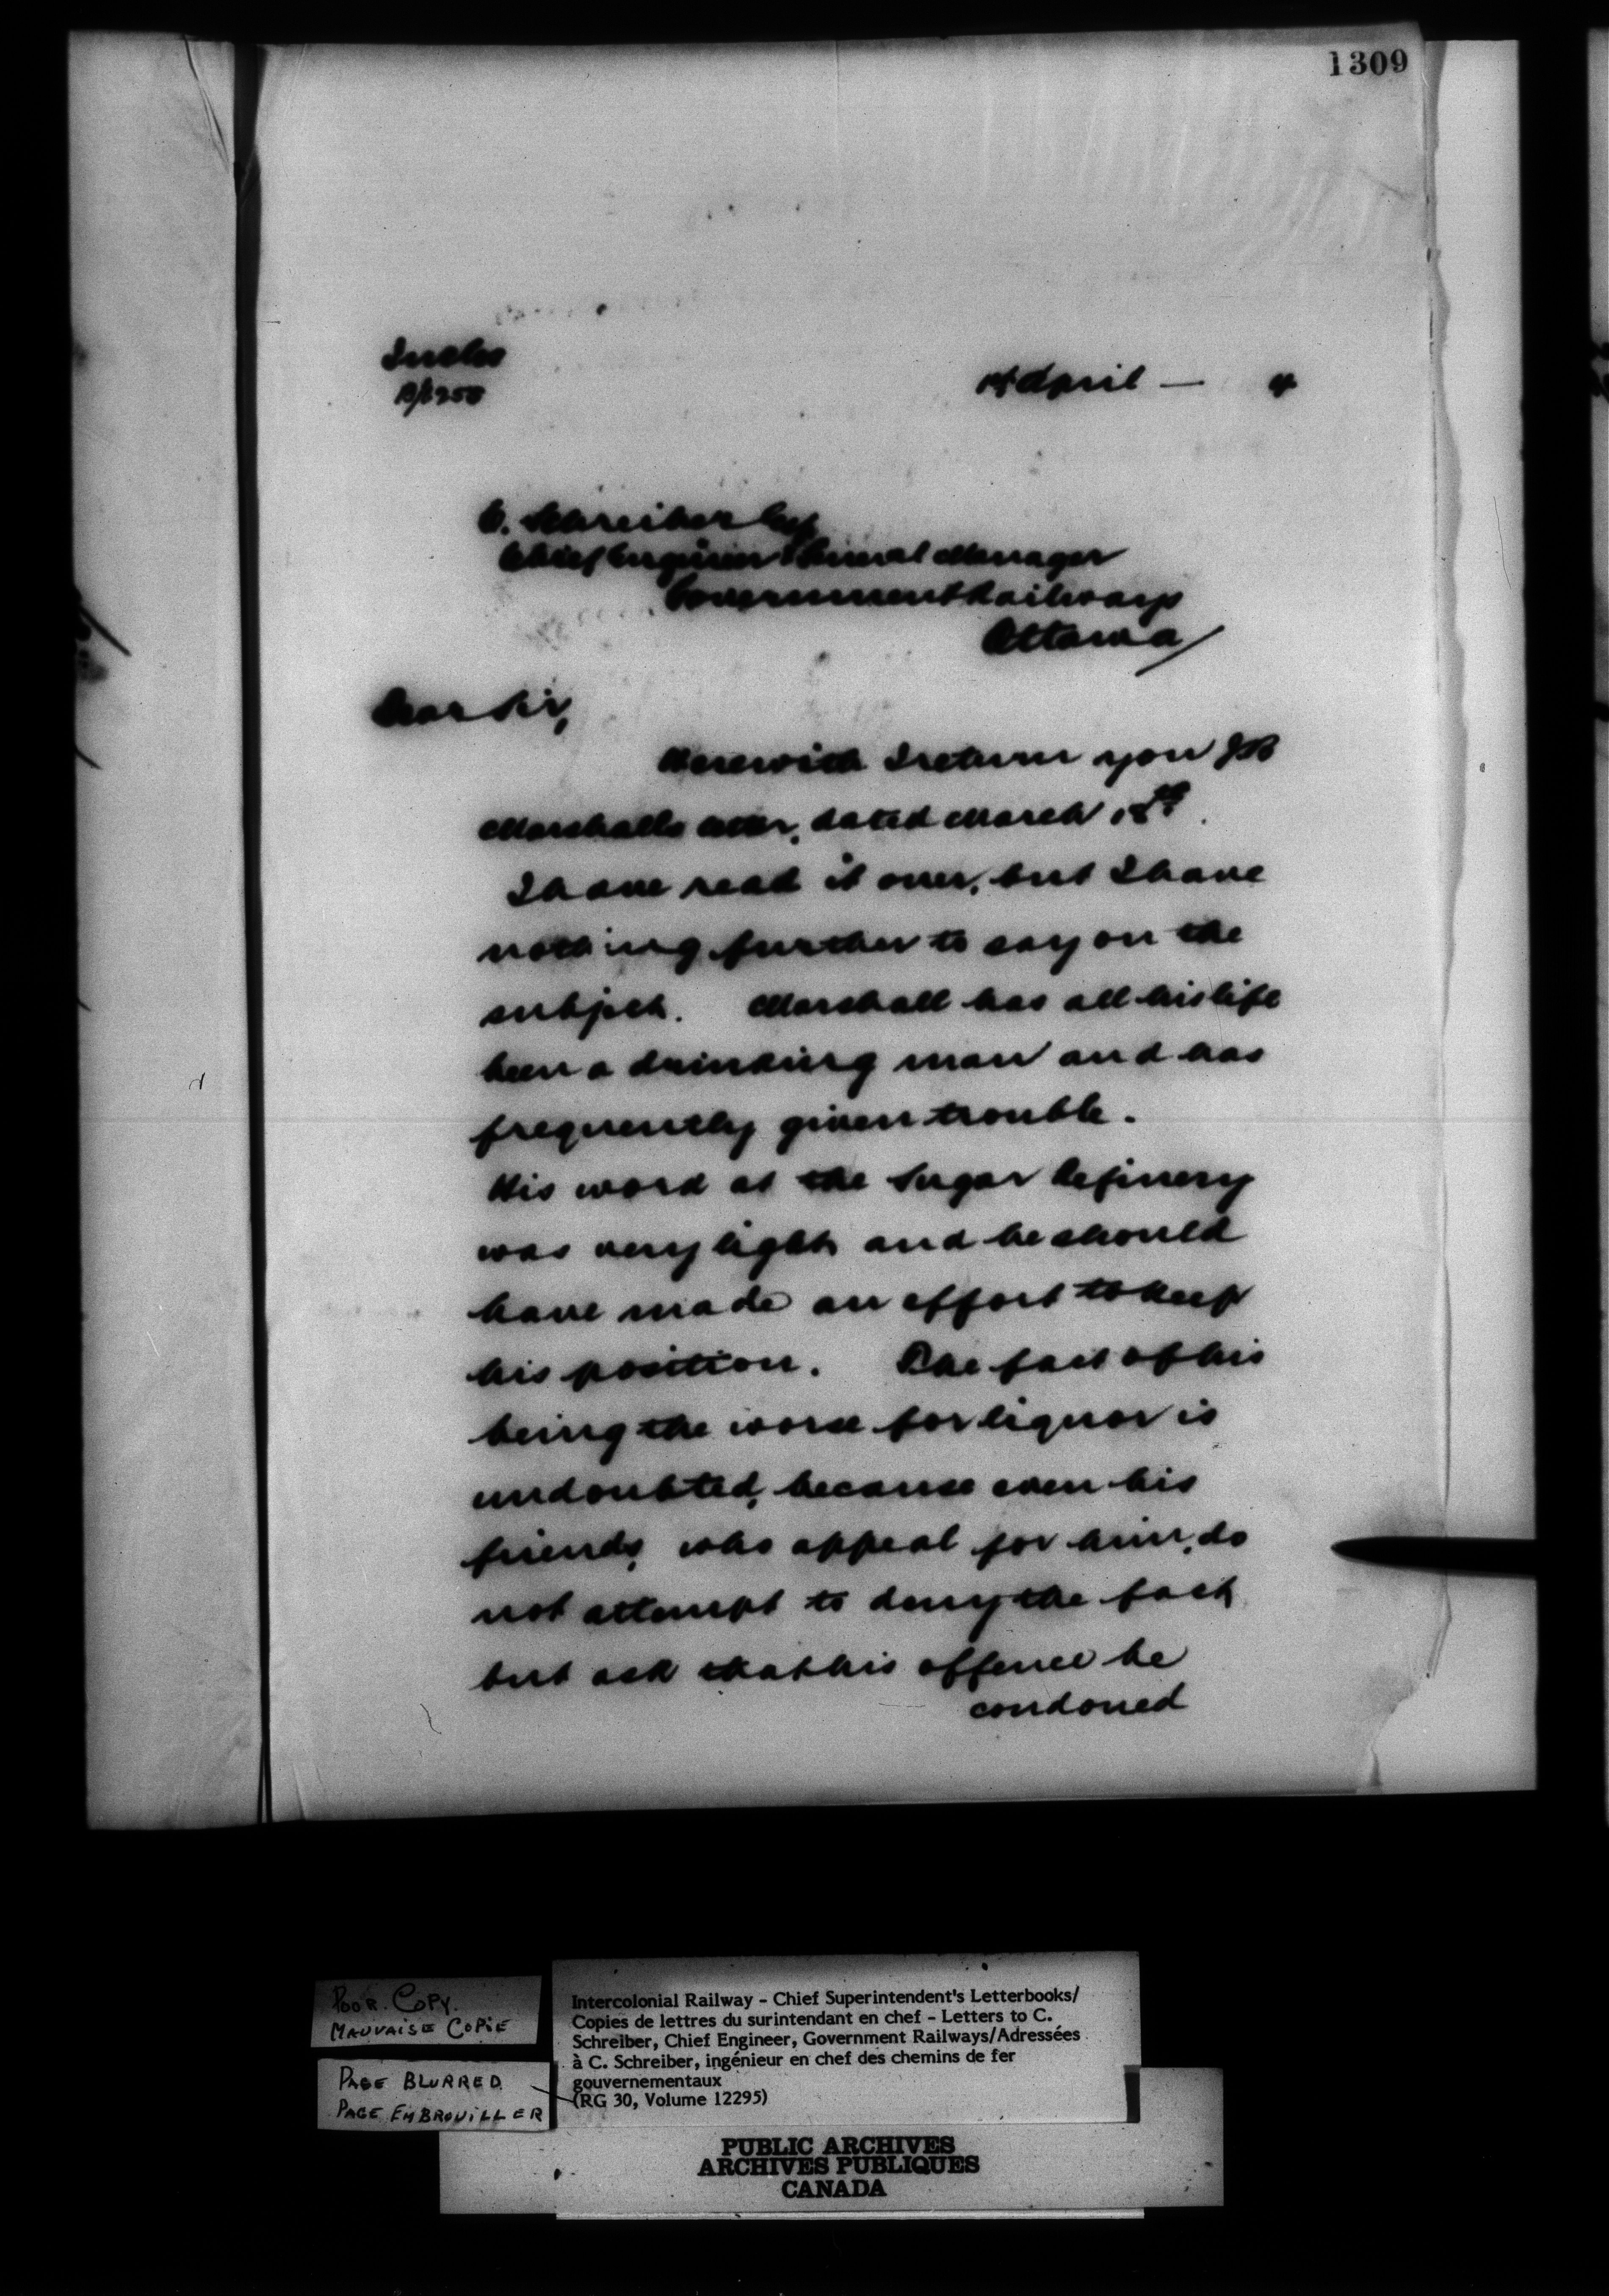 1309
Inclos
1st April — 
C. Schreiber Esq
Chief Engineer & General Manager
Government Railways
Ottawa
Dear Sir,
Herewith I return you JB
Marshalls letter, dated March
I have read it over, but I have
nothing further to say on the
subject. Marshall has all his life
been a drinking man and has
frequently given trouble.
His word at the Sugar Refinery
was very light and he should
have made an effort to keep
his position. The fact of his
being the worse for liquor is
undoubted, because even his
friends, who appeal for him, do
not attempt to deny the fact
but ask that his offence be
condoned
POOR. COPY.
MAUVAISE COPIE
PAGE BLURRED
PAGE EMBROUILLER
Intercolonial Railway - Chief Superintendent's Letterbooks/
Copies de lettres du surintendant en chef - Letters to C.
Schreiber, Chief Engineer, Government Railways/Adressées
à C. Schreiber, ingénieur en chef des chemins de fer
gouvernementaux
(RG 30, Volume 12295)
PUBLIC ARCHIVES
ARCHIVES PUBLIQUES
CANADA